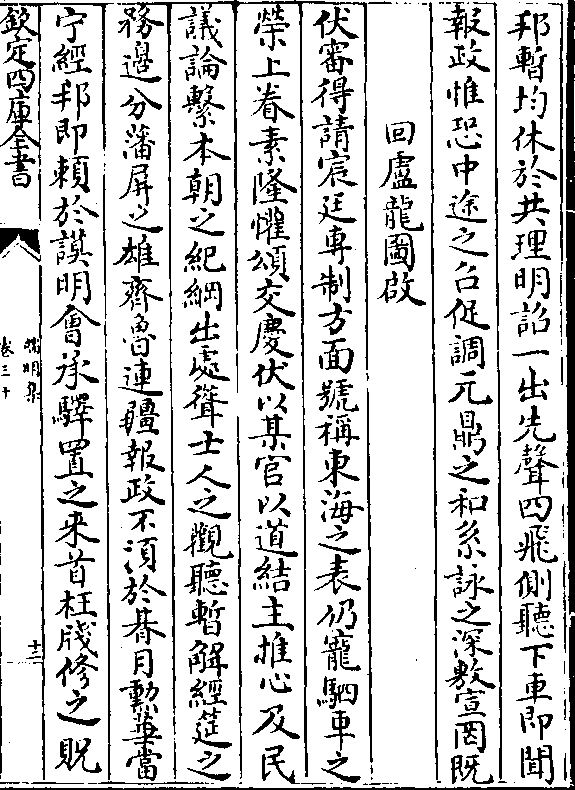 邦暫均休於共理明詔一出先聲四飛側聽下車即聞
報政惟恐中途之召促調元鼎之和系詠之深敷宣罔既
回盧龍圖啟
伏審得請宸廷專制方面號稱東海之表仍寵駟車之
榮上眷素隆懽頌交慶伏以某官以道結主推心及民
議論繫本朝之紀綱出處聳士人之觀聽暫解經筵之
務邊分藩屏之雄齊魯連疆報政不須於朞月勲華當
宁經邦即頼於謨明會承驛置之来首枉牋修之貺
欽定四庫全書
端明集
卷三十
十三